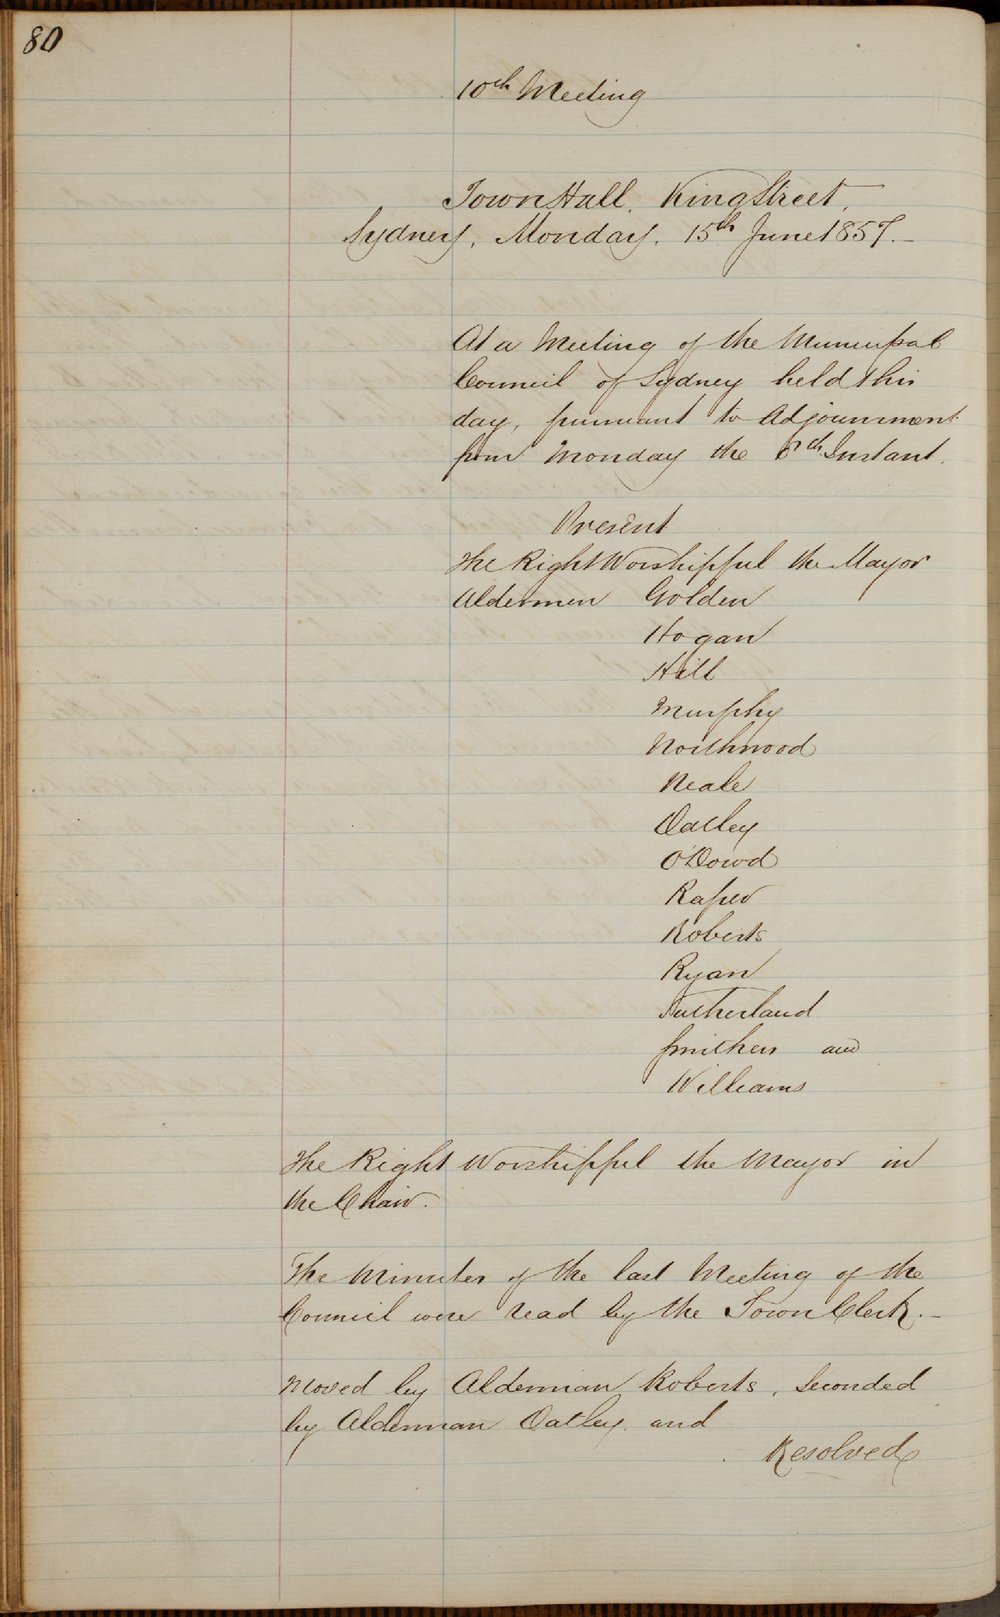 80
10th Meeting
Town Hall, King Street,
Sydney, Monday, 15th June 1857.—
At a Meeting of the Municipal
Council of Sydney held this
day, pursuant to Adjournment
from Monday the 8th Instant.
Present
The Right Worshipful the Mayor
Aldermen Golden
Hogan
Hill
Murphy
Northwood
Neale
Oatley
O'Dowd
Raper
Roberts
Ryan
Sutherland
Smithers and
Williams
The Right Worshipful the Mayor in
the Chair.
The Minutes of the last Meeting of the
Council were read by the Town Clerk.—
Moved by Alderman Roberts, Seconded
by Alderman Oatley and
Resolved